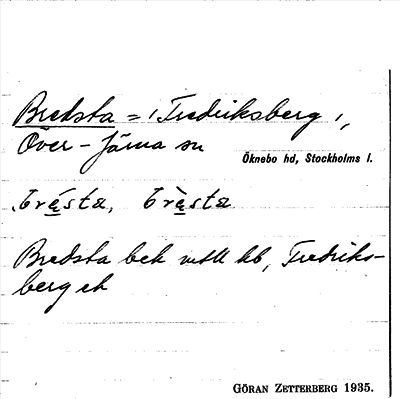 Bredsta = 'Fredriksberg',
Över-Järna sn
Öknebo hd, Stockholms l.
Bredsta bek mtl kb, Fredriks-
berg ek
GÖRAN ZETTERBERG 1935.